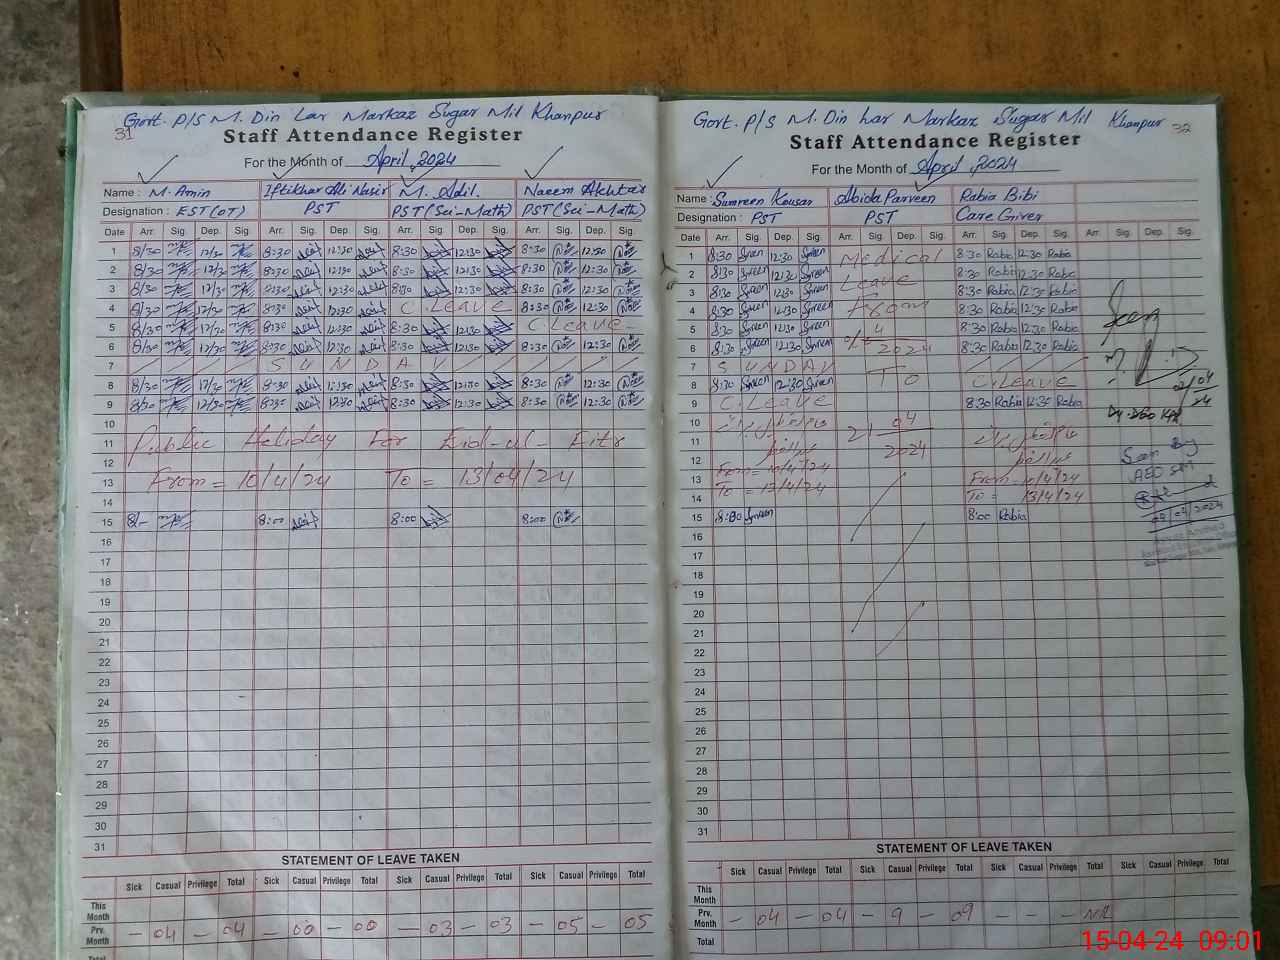 Govt. P/S M. Din Lar Markaz Sugar Mil Khanpur
31
Staff Attendance Register
For the Month of April, 2024
Name : M. Amin Iftikhar Ali Nasir M. Adil. Naeem Akhtar
Designation : EST(OT) PST PST(Sci-Math) PST(Sci-Math)
Date Arr. Sig. Dep. Sig. Arr. Sig. Dep. Sig. Arr. Sig. Dep. Sig. Arr. Sig. Dep. Sig.
1 8/30 12/30 8:30 12:30 8:30 12:30 8:30 12:30
2 8/30 12/30 8:30 12:30 8:30 12:30 8:30 12:30
3 8/30 12/30 8:30 12:30 8:30 12:30 8:30 12:30
4 8/30 12/30 8:30 12:30 C. Leave 8:30 12:30
5 8/30 12/30 8:30 12:30 8:30 12:30 C Leave
6 8/30 12/30 8:30 12:30 8:30 12:30 8:30 12:30
7 SUNDAY
8 8/30 12/30 8:30 12:30 8:30 12:30 8:30 12:30
9 8/30 12/30 8:30 12:30 8:30 12:30 8:30 12:30
10
11 Public Holiday For Eid-ul-Fitr
12
13 From = 10/4/24 To = 13/04/24
14
15 8/- 8:00 8:00 8:00
16
17
18
19
20
21
22
23
24
25
26
27
28
29
30
31
STATEMENT OF LEAVE TAKEN
Sick Casual Privilege Total Sick Casual Privilege Total Sick Casual Privilege Total Sick Casual Privilege Total
This Month
Prv. Month - 04 - 04 - 00 - 00 - 03 - 03 - 05 - 05
Total
Govt. P/S M. Din Lar Markaz Sugar Mil Khanpur 32
Staff Attendance Register
For the Month of April, 2024
Name : Sumreen Kousar Abida Parveen Rabia Bibi
Designation : PST PST Care Giver
Date Arr. Sig. Dep. Sig. Arr. Sig. Dep. Sig. Arr. Sig. Dep. Sig. Arr. Sig. Dep. Sig.
1 8:30 Sreen 12:30 Sreen Medical 8:30 Rabia 12:30 Rabia
2 8:30 Sreen 12:30 Sreen 8:30 Rabia 12:30 Rabia
3 8:30 Sreen 12:30 Sreen Leave 8:30 Rabia 12:30 Rabia
4 8:30 Sreen 12:30 Sreen From 8:30 Rabia 12:30 Rabia
5 8:30 Sreen 12:30 Sreen 4 8:30 Rabia 12:30 Rabia
6 8:30 Sreen 12:30 Sreen 2024 8:30 Rabia 12:30 Rabia
7 SUNDAY
8 8:30 Sreen 12:30 Sreen TO C.Leave
9 C. Leave 8:30 Rabia 12:30 Rabia
10 04
11 2024
12
13 From = 10/4/24 From = 10/4/24
14 To = 13/4/24 To = 13/4/24
15 8:00 Sreen 8:00 Rabia
16
17
18
19
20
21
22
23
24
25
26
27
28
29
30
31
Seen
Seen By
AEO
STATEMENT OF LEAVE TAKEN
Sick Casual Privilege Total Sick Casual Privilege Total Sick Casual Privilege Total Sick Casual Privilege Total
This Month
Prv. Month - 04 - 04 - 9 - 09 - - - Nil
Total
15-04-24 09:01